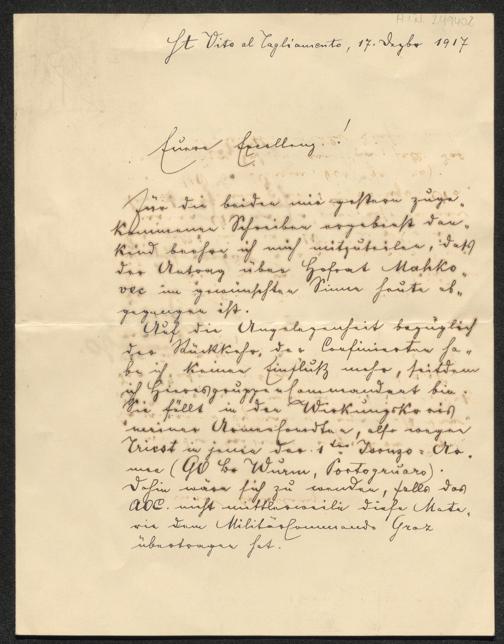 H.I.N. 249402
St Vito al Tagliamento, 17. Dezbr 1917
Euere Excellenz!
Für die beiden mir gestern zuge-
kommenen Schreiben ergebenst dan-
kend beehre ich mich mitzuteilen, daß
der Antrag über Hofrat Mahko-
vec im gewünschten Sinne heute ab-
gegangen ist.
Auf die Angelegenheit bezüglich
der Rückkehr der Confinierten ha-
be ich keinen Einfluß mehr, seitdem
ich Heeresgruppen Commandant bin.
Sie fällt in den Wirkungskreis
meiner Armeekomdten, also wegen
Triest in jenen der 1ten Isonzo-Ar-
mee (GO Br Wurm, Portogruaro).
Dahin wäre sich zu wenden, falls das
AOC. nicht mittlerweile diese Mate-
rie dem Militär Commando Graz
übertragen hat.